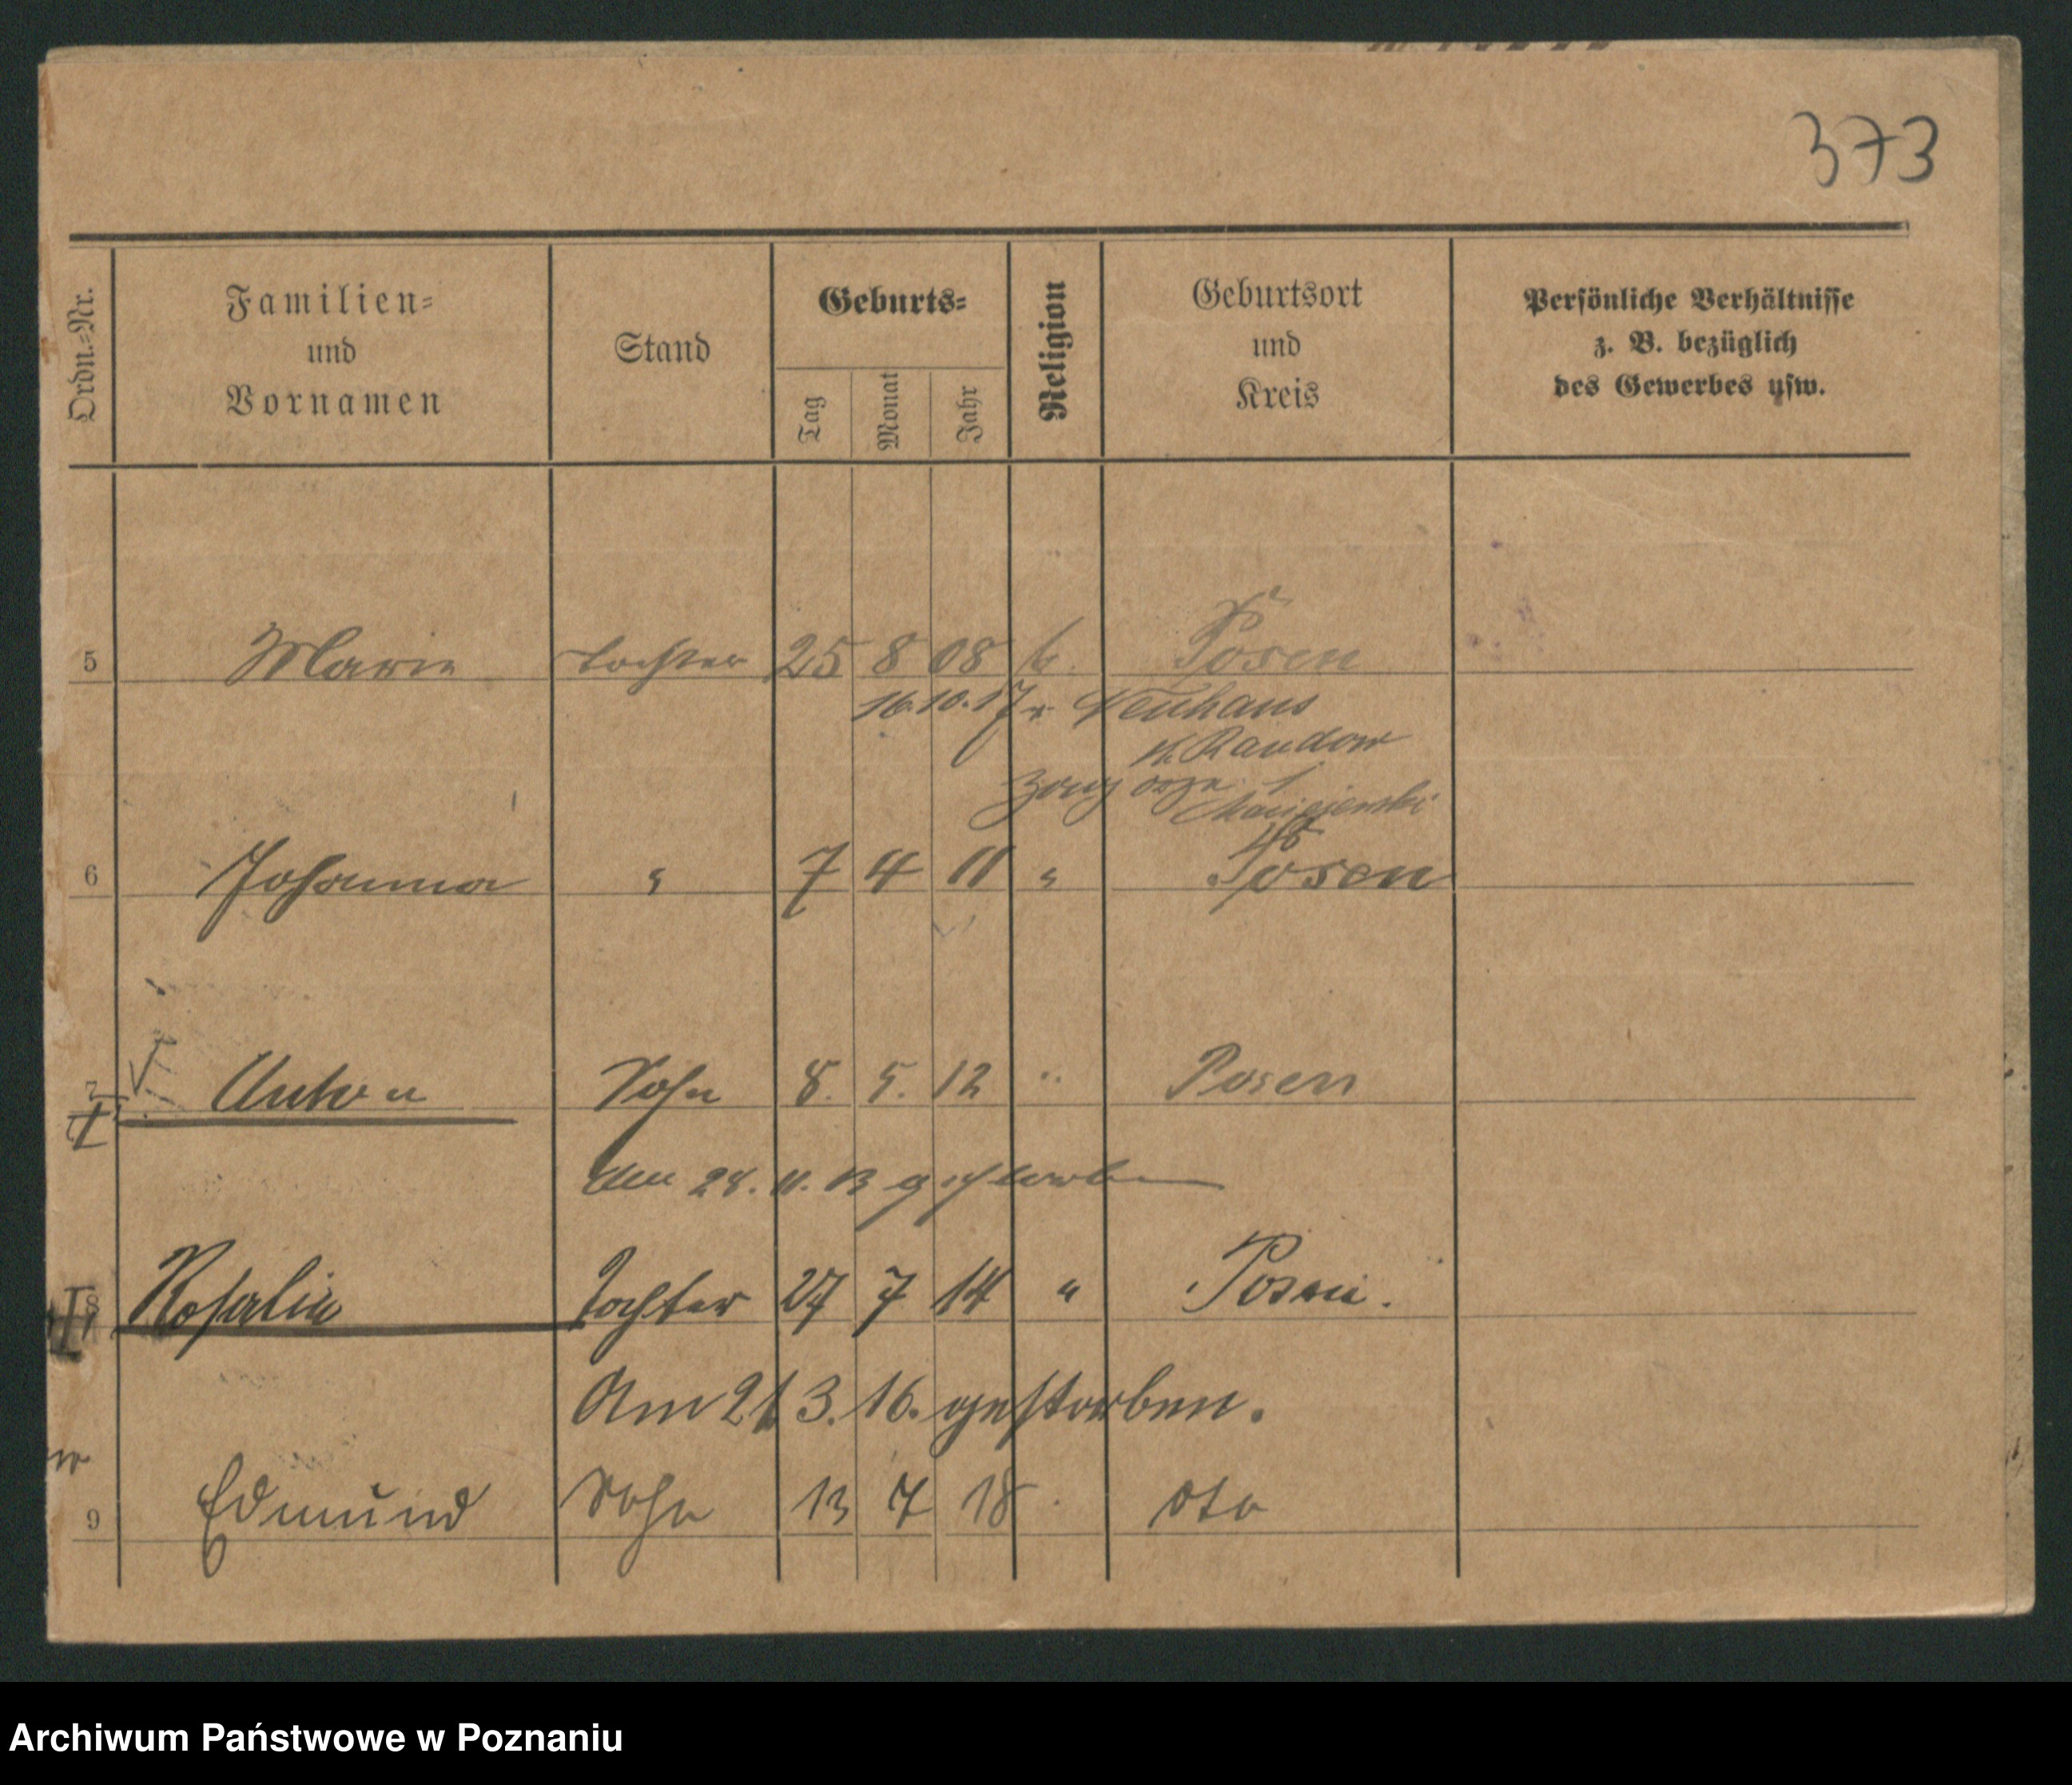 373
Ordn.=Nr.
Familien=
und
Vornamen
Stand
Geburts=
Tag
Monat
Jahr
Religion
Geburtsort
und
Kreis
Persönliche Verhältnisse
z. B. bezüglich
des Gewerbes usw.
5 Marie Tochter 25 8 08 k. Posen
16.10.17 Neuhaus
K. Randow
Maciejewski
6 Johanna " 7 4 11 " Posen
7 Anton Sohn 8. 5. 12 " Posen
Am 28. 11. 13 gestorben
8 Rosalie Tochter 27 7 14 " Posen.
Am 21 3. 16. gestorben.
9 Edmund Sohn 13 7 18 dto
Archiwum Państwowe w Poznaniu